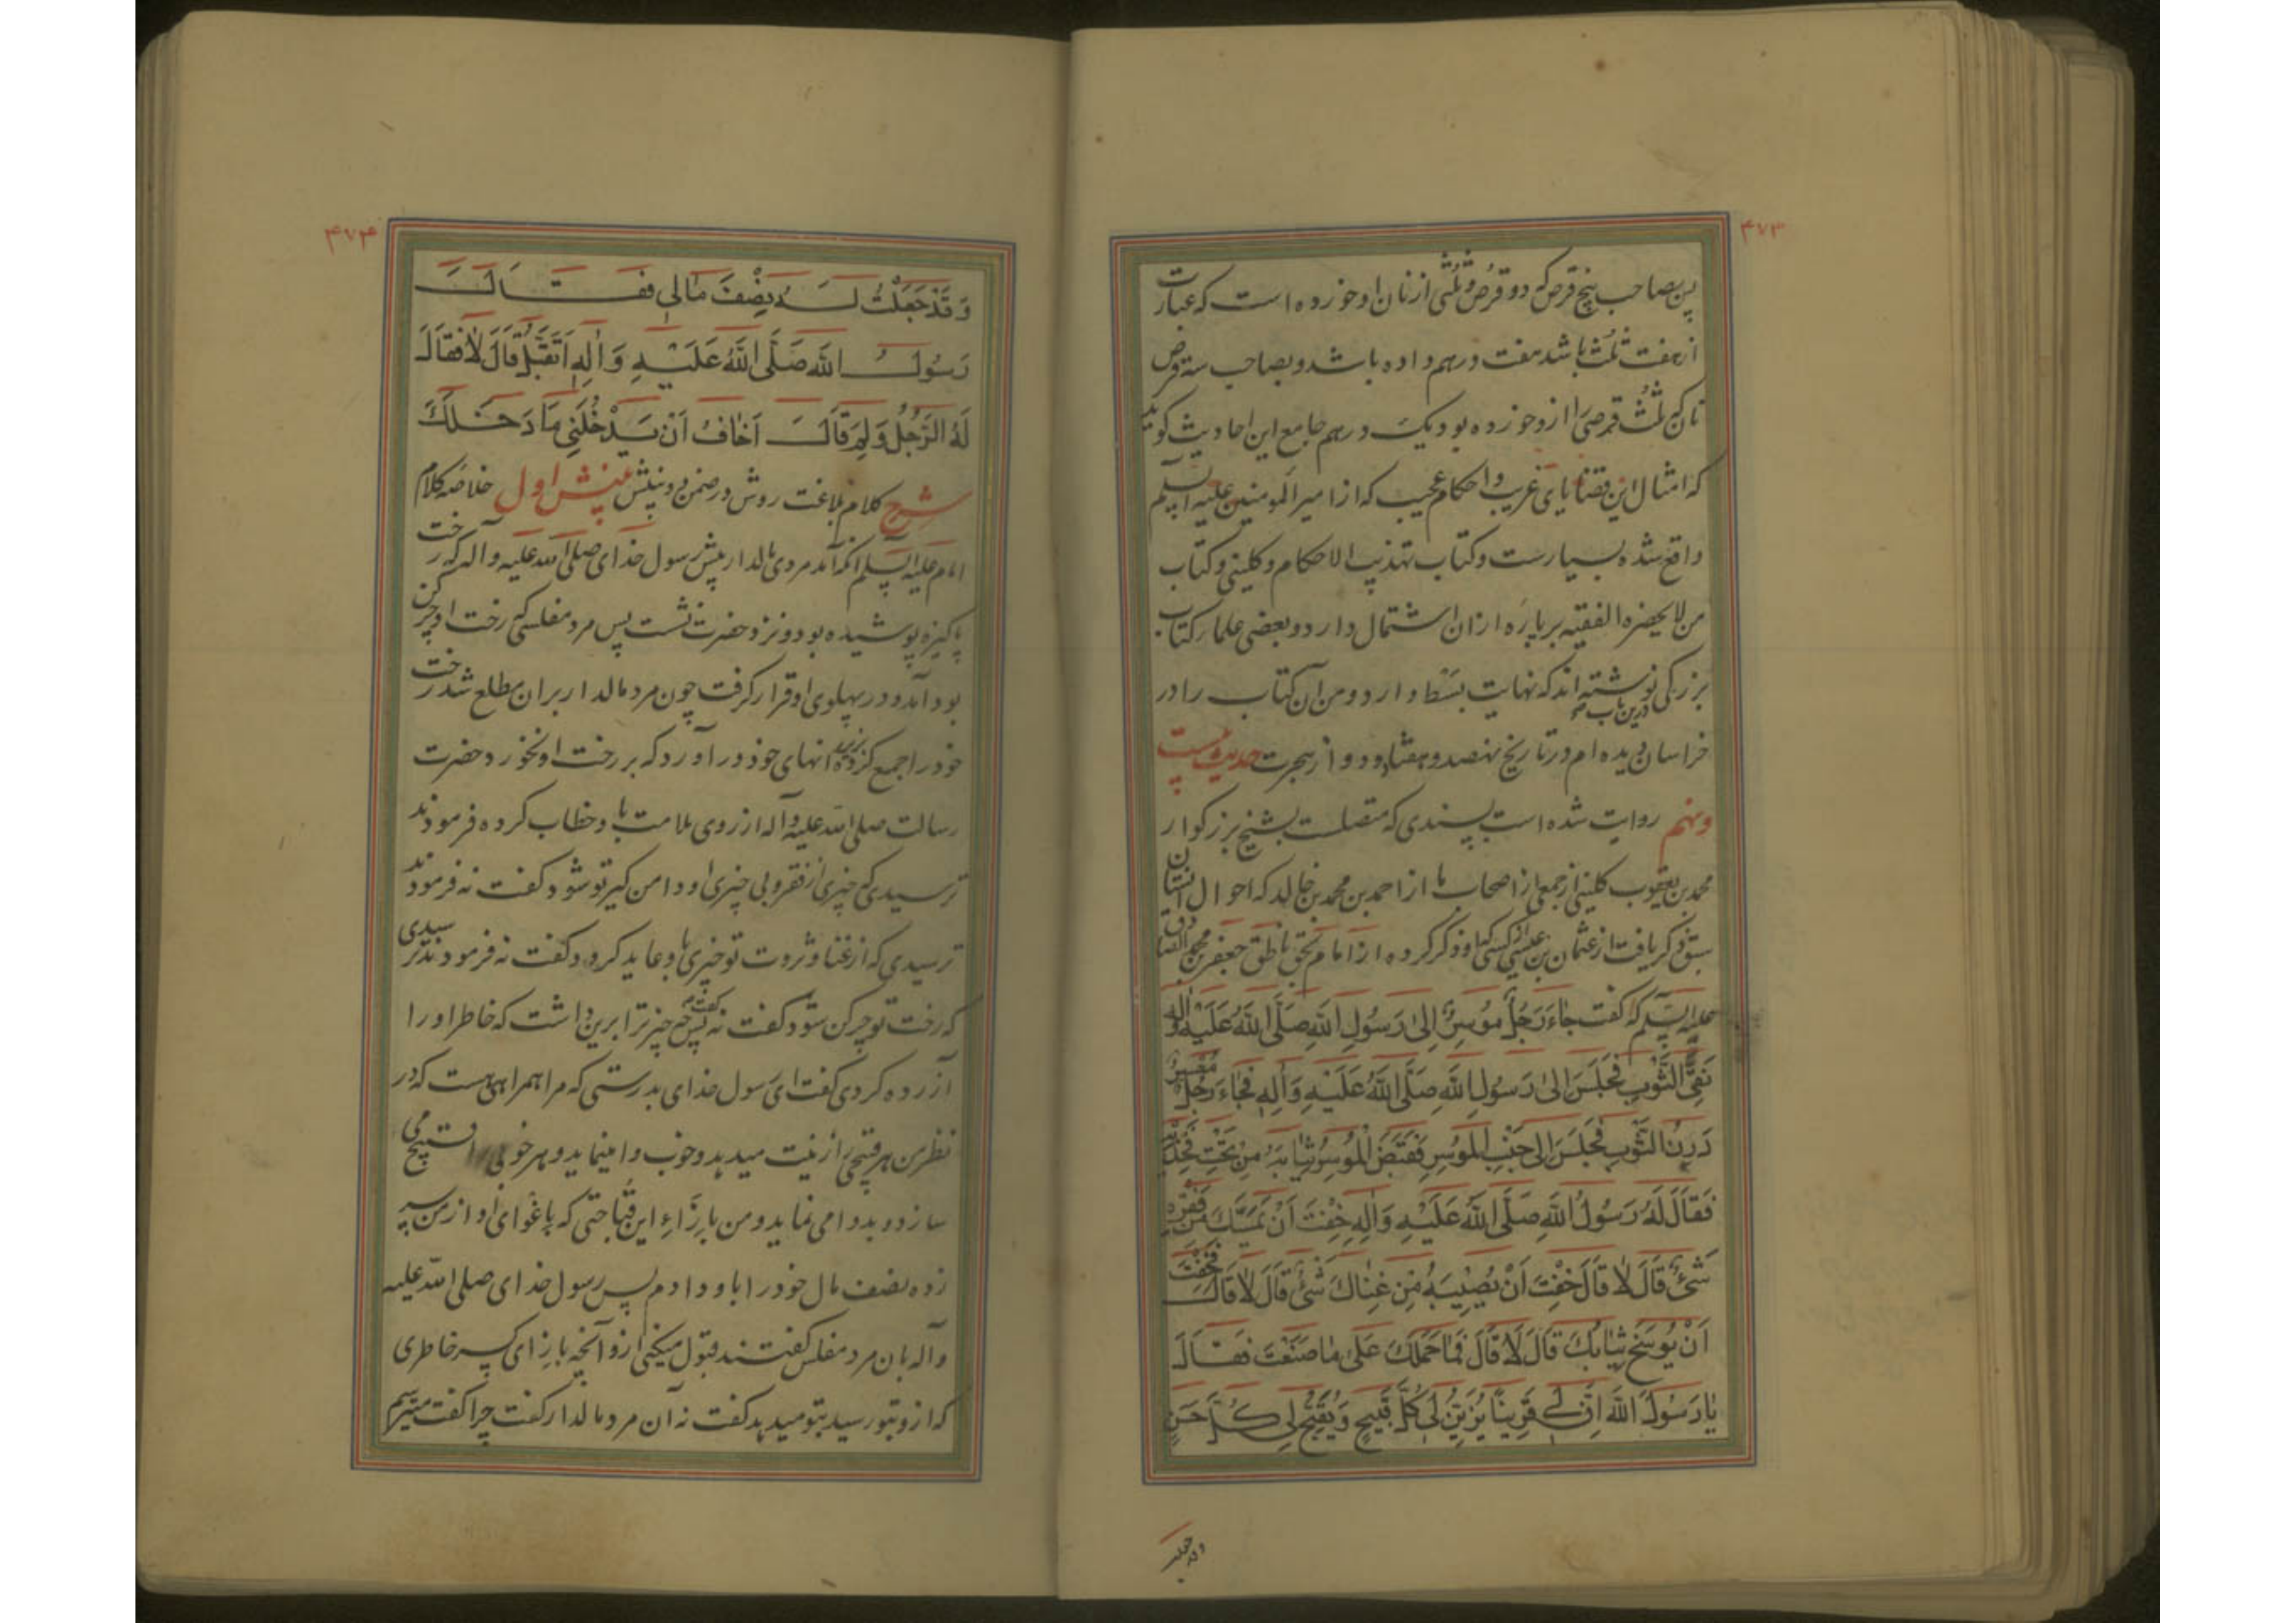 ۴۷۳
پس بصاحب پنج قرص که دو قرص و ثلثی از نان او خورده است که عبارت
از هفت ثلث باشد هفت درهم داده باشد و بصاحب سه قرص
تا که ثلث قرصی را ازو خورده بود یک درهم جامع این احادیث کوید
که امثال این قضایای غریب و احکام عجیب که از امیر المومنین علیه السلم
واقع شده بسیارست و کتاب تهذیب الاحکام و کلینی و کتاب
من لا یحضره الفقیه بر پاره از ان اشتمال دارد و بعضی علما کتاب
بزرکی درین باب نوشته اند که نهایت بسط دارد و من ان کتاب را در
خراسان دیده ام در تاریخ نهصد و هفتاد و دو از هجرت حدیث بیست
و نهم روایت شده است بسندی که متصلست بشیخ بزرکوار
محمد بن یعقوب کلینی از جمعی از اصحاب ما از احمد بن محمد بن خالد که احوال ایشان
سبق ذکر یافت از عثمان بن عیسی از کسی که او ذکر کرده از امام بحق ناطق جعفر بن محمد الصادق
علیه السلم که کفت جَاءَ رَجُلٌ مُوسِرٌ اِلىٰ رَسُولِ اللهِ صَلَّى اللهُ عَلَيْهِ وَاٰلِهِ
نَقِيُّ الثَّوْبِ فَجَلَسَ اِلىٰ رَسُولِ اللهِ صَلَّى اللهُ عَلَيْهِ وَاٰلِهِ فَجَاءَ رَجُلٌ مُعْسِرٌ
دَرِنُ الثَّوْبِ فَجَلَسَ اِلى جَنْبِ الْمُوسِرِ فَقَبَضَ الْمُوسِرُ ثِيَابَهُ مِنْ تَحْتِ فَخِذَيْهِ
فَقَالَ لَهُ رَسُولُ اللهِ صَلَّى اللهُ عَلَيْهِ وَاٰلِهِ خِفْتَ اَنْ يَمَسَّكَ مِنْ فَقْرِهِ
شَيْءٌ قَالَ لاٰ قَالَ خِفْتَ اَنْ يُصِيبَهُ مِنْ غِنٰاكَ شَيْءٌ قَالَ لاٰ قَالَ فَخِفْتَ
اَنْ يُوسِخَ ثِيٰابَكَ قَالَ لاٰ قَالَ فَمٰا حَمَلَكَ عَلىٰ مٰا صَنَعْتَ فَقَالَ
يٰا رَسُولَ اللهِ اِنَّ لِي قَرِيناً يُزَيِّنُ لِي كُلَّ قَبِيحٍ وَيُقَبِّحُ لِي كُلَّ حَسَنٍ
وقد جعلت
۴۷۴
وَقَدْ جَعَلْتُ لَهُ نِصْفَ مَالِي فَقَالَ
رَسُولُ اللهِ صَلَّى اللهُ عَلَيْهِ وَاٰلِهِ اَتَقْبَلُ قَالَ لاٰ فَقَالَ
لَهُ الرَّجُلُ وَلِمَ قَالَ اَخٰافُ اَنْ يَدْخُلَنِي مَا دَخَلَكَ
شرح کلام بلاغت روش در ضمن دو بینش بینش اول خلاصه کلام
امام علیه السلم انکه آمد مردی مالدار پیش رسول خدای صلی الله علیه و آله که رخت
پاکیزه پوشیده بود و نزد حضرت نشست پس مرد مفلسی که رخت او چرکن
بود آمد و در پهلوی او قرار کرفت چون مرد مالدار بران مطلع شد رخت
خود را جمع کرده در زیر رانهای خود در آورد که بر رخت او نخورد حضرت
رسالت صلی الله علیه و آله از روی ملامت باو خطاب کرده فرمودند
ترسیدی که چیزی از فقر و بی چیزی او دامن کیر تو شود کفت نه فرمودند
ترسیدی که از غنا و ثروت تو چیزی باو عاید کردد کفت نه فرمودند ترسیدی
که رخت تو چرکن شود کفت نه کفتند پس چه چیز ترا برین داشت که خاطر او را
آزرده کردی کفت ای رسول خدای بدرستی که مرا همراهی هست که در
نظر من هر قبیحی را زینت میدهد و خوب وا مینماید و هر خوبی را قبیح می
سازد و بد وا می نماید و من بازاء این قباحتی که باغوای او از من سر
زده نصف مال خود را باو دادم پس رسول خدای صلی الله علیه
و آله بان مرد مفلس کفتند قبول میکنی ازو آنچه بازای کسر خاطری
که ازو بتو رسید بتو میدهد کفت نه آن مرد مالدار کفت چرا کفت میترسم